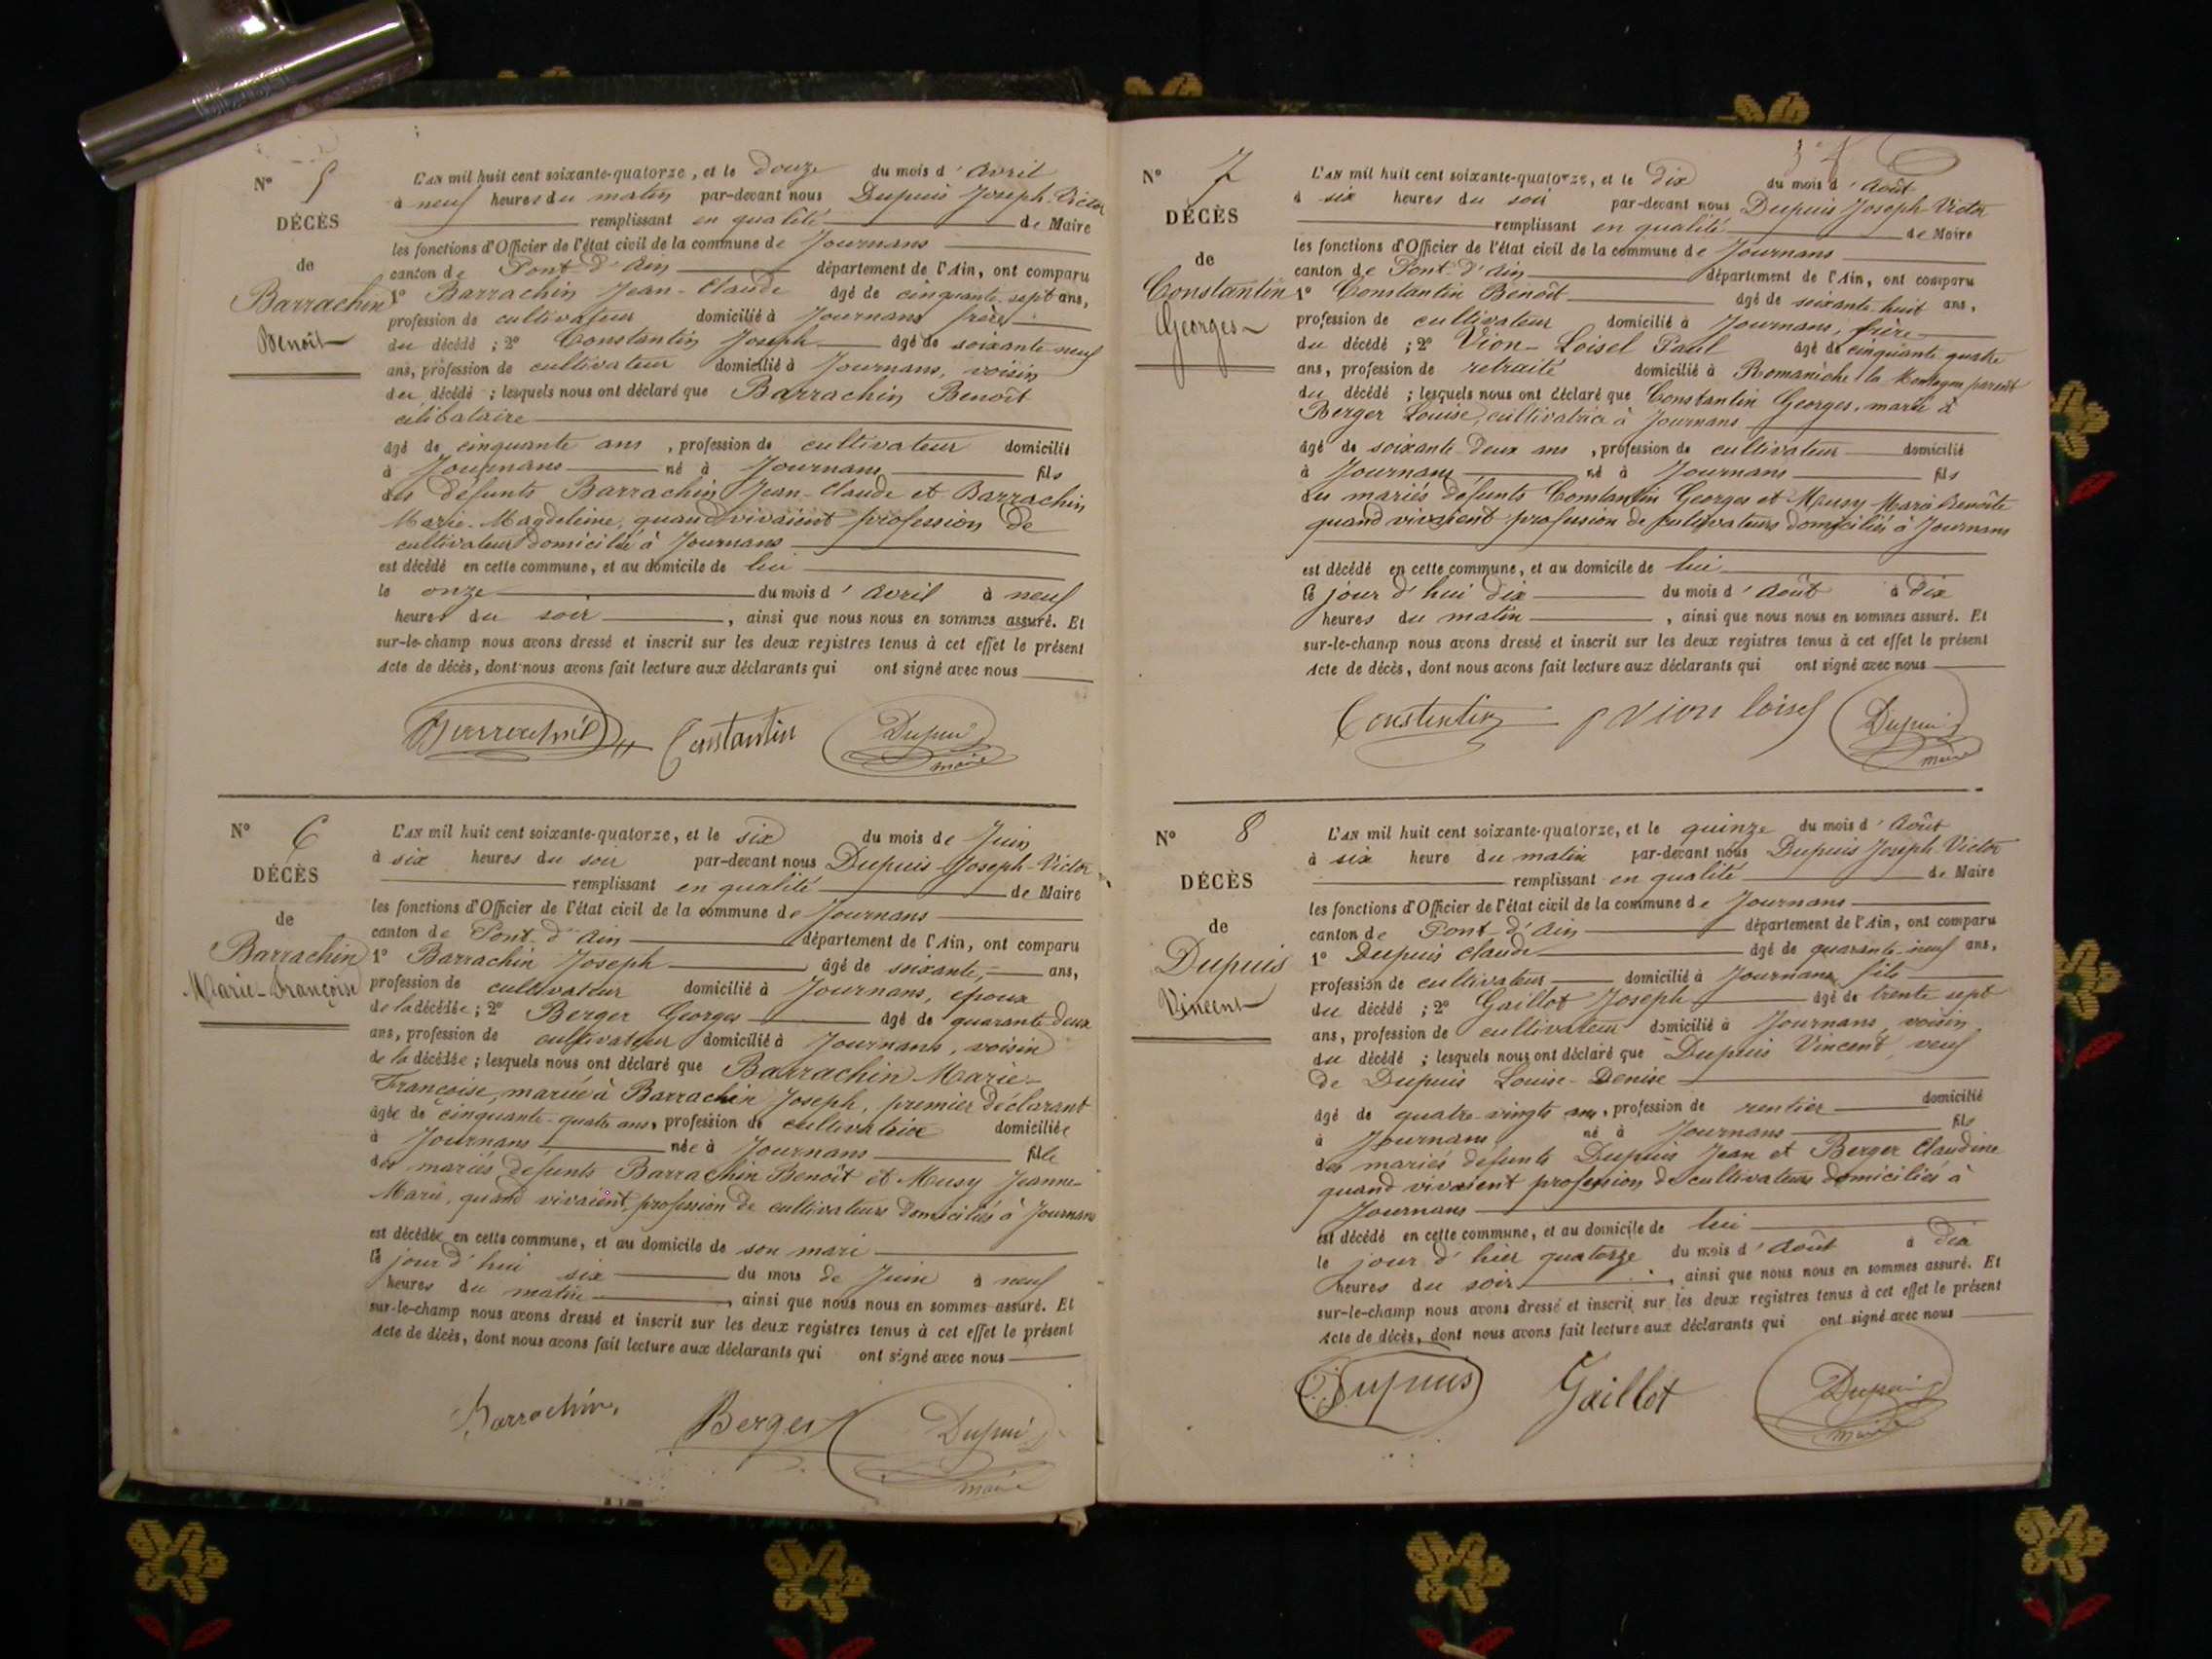 N° 5
DÉCÈS
de
Barrachin
Benoit
L'AN mil huit cent soixante-quatorze, et le douze du mois d'avril
à neuf heures du matin par-devant nous Dupuis Joseph-Victor
remplissant en qualité de Maire
les fonctions d'Officier de l'état civil de la commune de Journans
canton de Pont-d'Ain département de l'Ain, ont comparu
1° Barrachin Jean-Claude âgé de cinquante-sept ans,
profession de cultivateur domicilié à Journans frère
du décédé ; 2° Constantin Joseph âgé de soixante-neuf
ans, profession de cultivateur domicilié à Journans, voisin
du décédé ; lesquels nous ont déclaré que Barrachin Benoît
célibataire
âgé de cinquante ans, profession de cultivateur domicilié
à Journans né à Journans fils
des défunts Barrachin Jean-Claude et Barrachin
Marie-Magdeleine, quand vivaient profession de
cultivateurs domiciliés à Journans
est décédé en cette commune, et au domicile de lui
le onze du mois d'avril à neuf
heures du soir, ainsi que nous nous en sommes assuré. Et
sur-le-champ nous avons dressé et inscrit sur les deux registres tenus à cet effet le présent
Acte de décès, dont nous avons fait lecture aux déclarants qui ont signé avec nous
Constantin Dupuis
maire
N° 6
DÉCÈS
de
Barrachin
Marie-Françoise
L'AN mil huit cent soixante-quatorze, et le six du mois de Juin
à six heures du soir par-devant nous Dupuis Joseph-Victor
remplissant en qualité de Maire
les fonctions d'Officier de l'état civil de la commune de Journans
canton de Pont-d'Ain département de l'Ain, ont comparu
1° Barrachin Joseph âgé de soixante, ans,
profession de cultivateur domicilié à Journans, époux
de la décédée ; 2° Berger Georges âgé de quarante-deux
ans, profession de cultivateur domicilié à Journans, voisin
de la décédée ; lesquels nous ont déclaré que Barrachin Marie-
Françoise, mariée à Barrachin Joseph, premier déclarant
âgée de cinquante-quatre ans, profession de cultivatrice domiciliée
à Journans née à Journans fille
des mariés défunts Barrachin Benoît et Musy Jeanne-
Marie, quand vivaient, profession de cultivateurs domiciliés à Journans
est décédée en cette commune, et au domicile de son mari
le jour d'hui six du mois de Juin à neuf
heures du matin, ainsi que nous nous en sommes assuré. Et
sur-le-champ nous avons dressé et inscrit sur les deux registres tenus à cet effet le présent
Acte de décès, dont nous avons fait lecture aux déclarants qui ont signé avec nous
Barrachin Berger Dupuis
maire
N° 7
DÉCÈS
de
Constantin
Georges
L'AN mil huit cent soixante-quatorze, et le dix du mois d'Août
à six heures du soir par-devant nous Dupuis Joseph-Victor
remplissant en qualité de Maire
les fonctions d'Officier de l'état civil de la commune de Journans
canton de Pont-d'Ain département de l'Ain, ont comparu
1° Constantin Benoît âgé de soixante-huit ans,
profession de cultivateur domicilié à Journans, frère
du décédé ; 2° Vion-Loisel Paul âgé de cinquante quatre
ans, profession de retraité domicilié à Romanèche la Montagne parent
du décédé ; lesquels nous ont déclaré que Constantin Georges, marié à
Berger Louise, cultivatrice à Journans
âgé de soixante-deux ans, profession de cultivateur domicilié
à Journans né à Journans fils
des mariés défunts Constantin Georges et Musy Marie Benoîte
quand vivaient profession de cultivateurs domiciliés à Journans
est décédé en cette commune, et au domicile de lui
le jour d'hui dix du mois d'Août à dix
heures du matin, ainsi que nous nous en sommes assuré. Et
sur-le-champ nous avons dressé et inscrit sur les deux registres tenus à cet effet le présent
Acte de décès, dont nous avons fait lecture aux déclarants qui ont signé avec nous
Constantin P Vion Loisel Dupuis
maire
N° 8
DÉCÈS
de
Dupuis
Vincent
L'AN mil huit cent soixante-quatorze, et le quinze du mois d'Août
à six heure du matin par-devant nous Dupuis Joseph-Victor
remplissant en qualité de Maire
les fonctions d'Officier de l'état civil de la commune de Journans
canton de Pont-d'Ain département de l'Ain, ont comparu
1° Dupuis Claude âgé de quarante-neuf ans,
profession de cultivateur domicilié à Journans fils
du décédé ; 2° Gaillot Joseph âgé de trente sept
ans, profession de cultivateur domicilié à Journans, voisin
du décédé ; lesquels nous ont déclaré que Dupuis Vincent, veuf
de Dupuis Louise-Denise
âgé de quatre-vingts ans, profession de rentier domicilié
à Journans né à Journans fils
des mariés défunts Dupuis Jean et Berger Claudine
quand vivaient profession de cultivateurs domiciliés à
Journans
est décédé en cette commune, et au domicile de lui
le jour d'hier quatorze du mois d'Août à dix
heures du soir, ainsi que nous nous en sommes assuré. Et
sur-le-champ nous avons dressé et inscrit sur les deux registres tenus à cet effet le présent
Acte de décès, dont nous avons fait lecture aux déclarants qui ont signé avec nous
Dupuis Gaillot Dupuis
maire